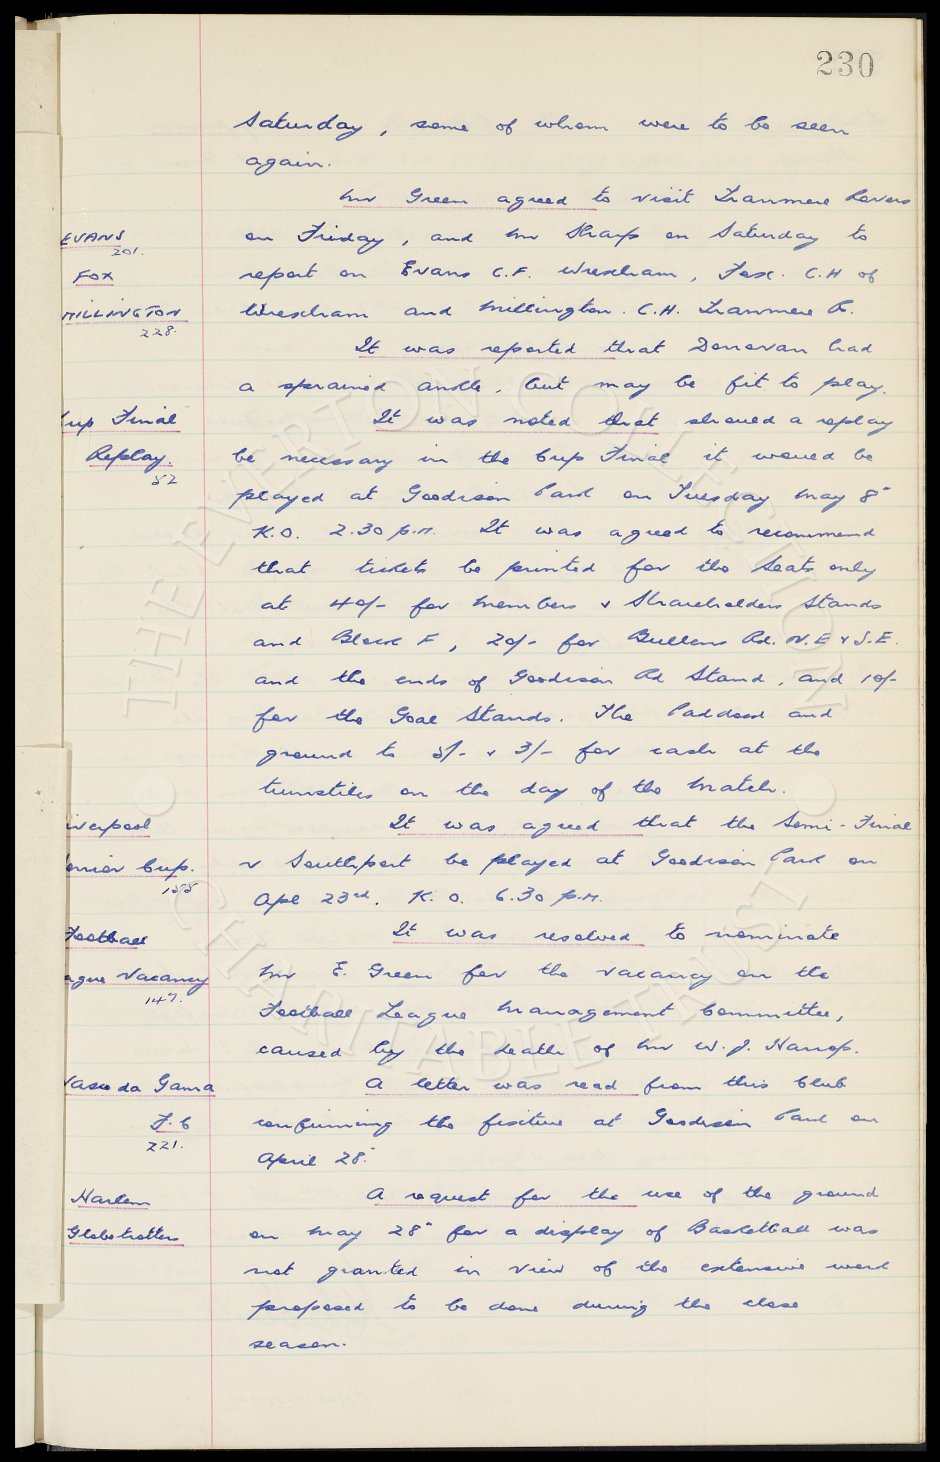 230
Saturday, some of whom were to be seen
again.
Mr Green agreed to visit Tranmere Rovers
EVANS on Friday, and Mr Sharp on Saturday to
201.
FOX report on Evans C.F. Wrexham, Fox. C.H of
MILLINGTON Wrexham and Millington. C.H. Tranmere R.
228.
It was reported that Donovan had
a sprained ankle, but may be fit to play.
up Final It was noted that should a replay
Replay. be necessary in the Cup Final it would be
52
played at Goodison Park on Tuesday May 8"
K.O. 2.30 p.m. It was agreed to recommend
that tickets be printed for the Seats only
at 40/- for Members & Shareholders Stands
and Block F, 20/- for Bullens Rd. N.E & S.E.
and the ends of Goodison Rd Stand, and 10/-
for the Goal Stands. The Paddock and
ground to 5/- & 3/- for cash at the
turnstiles on the day of the match.
iverpool It was agreed that the Semi-Final
enior Cup. v Southport be played at Goodison Park on
155
Apl 23rd. K.O. 6.30 p.m.
Football It was resolved to nominate
ague Vacancy Mr E. Green for the vacancy on the
147.
Football League Management Committee,
caused by the death of Mr W. J. Harrop.
Vasco da Gama A letter was read from this Club
F.C confirming the fixture at Goodison Park on
221.
April 28"
Harlem A request for the use of the ground
Globetrotters on May 28" for a display of Basketball was
not granted in view of the extensive work
proposed to be done during the close
season.
THE EVERTON COLLECTION
CHARITABLE TRUST